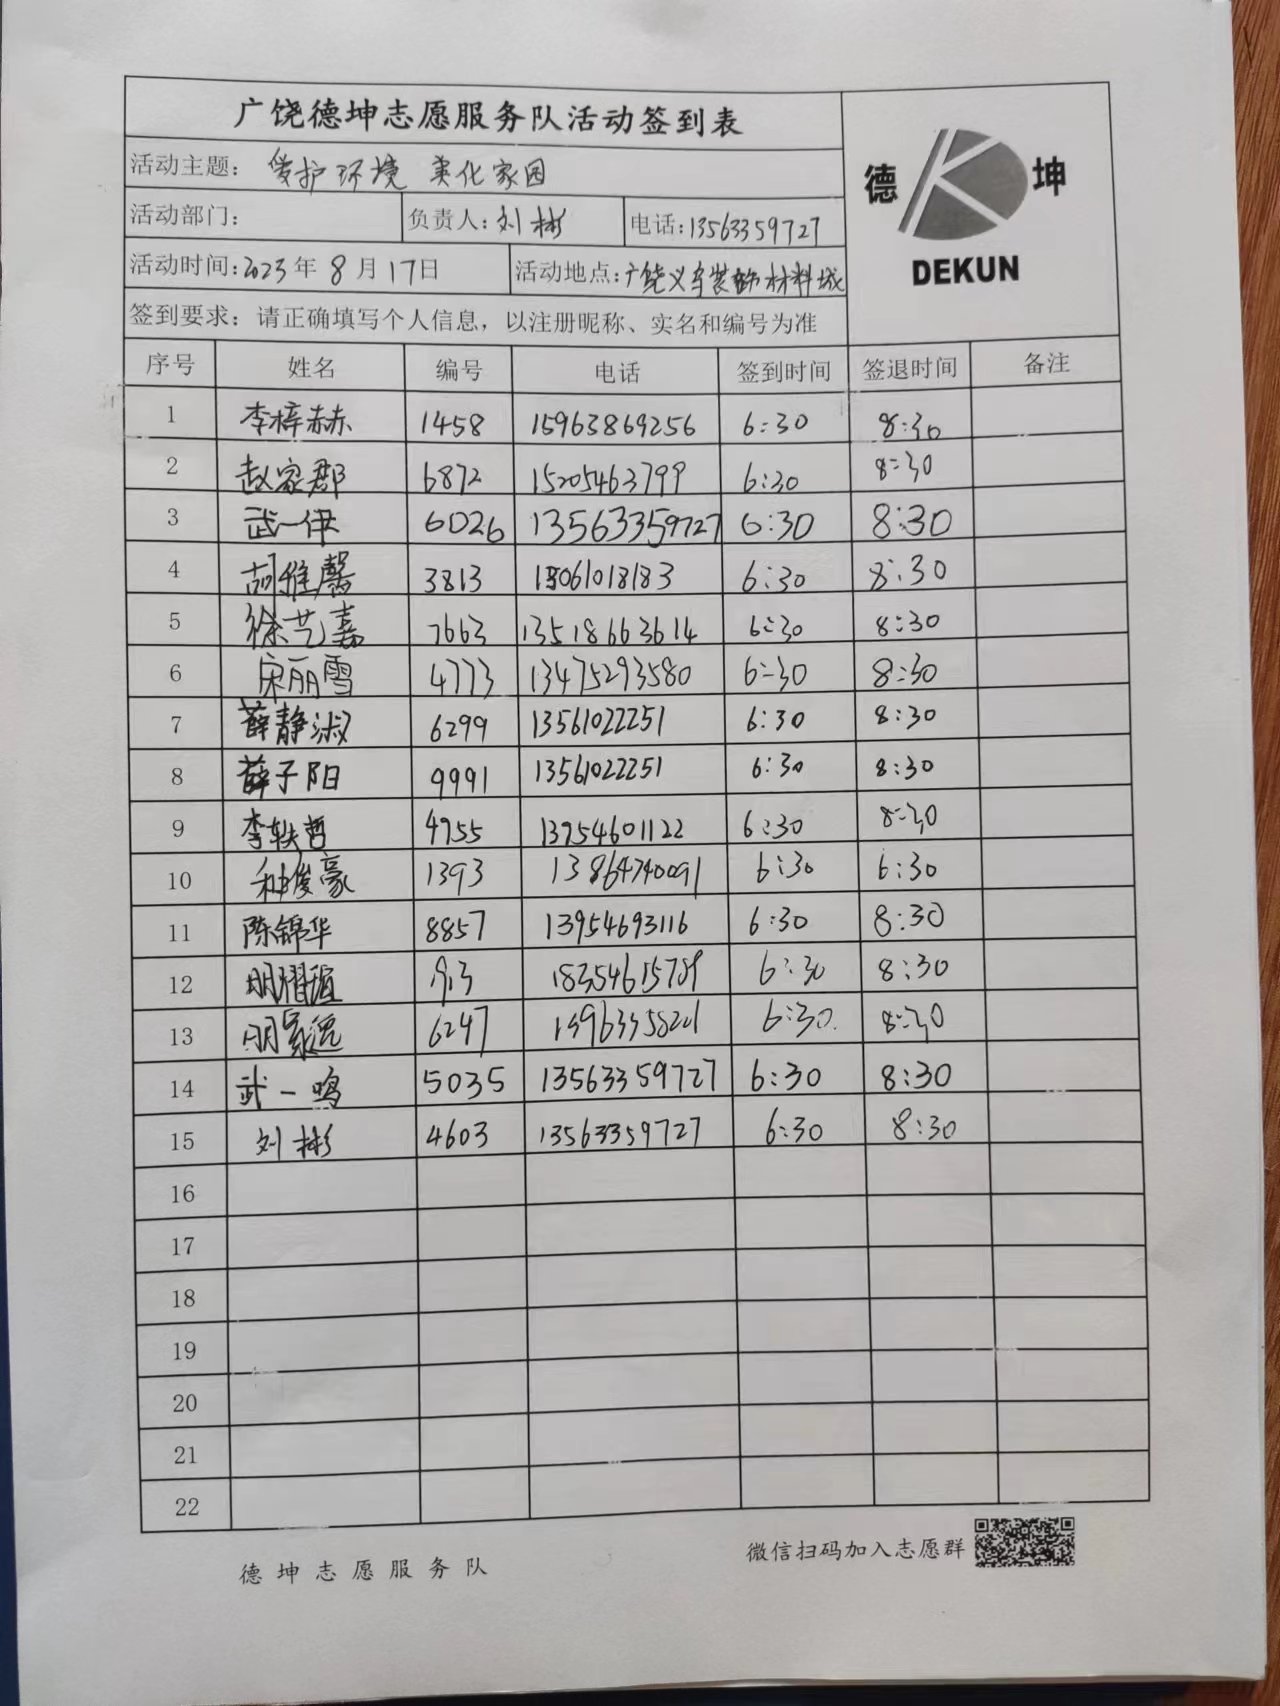 广饶德坤志愿服务队活动签到表
德 坤
DEKUN
活动主题：爱护环境 美化家园
活动部门： 负责人：刘彬 电话：13563359727
活动时间：2023年8月17日 活动地点：广饶义乌装饰材料城
签到要求：请正确填写个人信息，以注册昵称、实名和编号为准
序号 姓名 编号 电话 签到时间 签退时间 备注
1 李梓赫 1458 15963869256 6:30 8:30
2 赵家郡 6872 15205463799 6:30 8:30
3 武一伊 6026 13563359727 6:30 8:30
4 胡雅馨 3813 15061018183 6:30 8:30
5 徐艺嘉 7663 13518663614 6:30 8:30
6 宋丽雪 4773 13475293580 6:30 8:30
7 薛静淑 6299 13561022251 6:30 8:30
8 薛子阳 9991 13561022251 6:30 8:30
9 李轶哲 4755 13954601122 6:30 8:30
10 种俊豪 1393 13864740091 6:30 6:30
11 陈锦华 8857 13954693116 6:30 8:30
12 18354615789 6:30 8:30
13 6247 6:30 8:30
14 武一鸣 5035 13563359727 6:30 8:30
15 刘彬 4603 13563359727 6:30 8:30
16
17
18
19
20
21
22
德坤志愿服务队 微信扫码加入志愿群